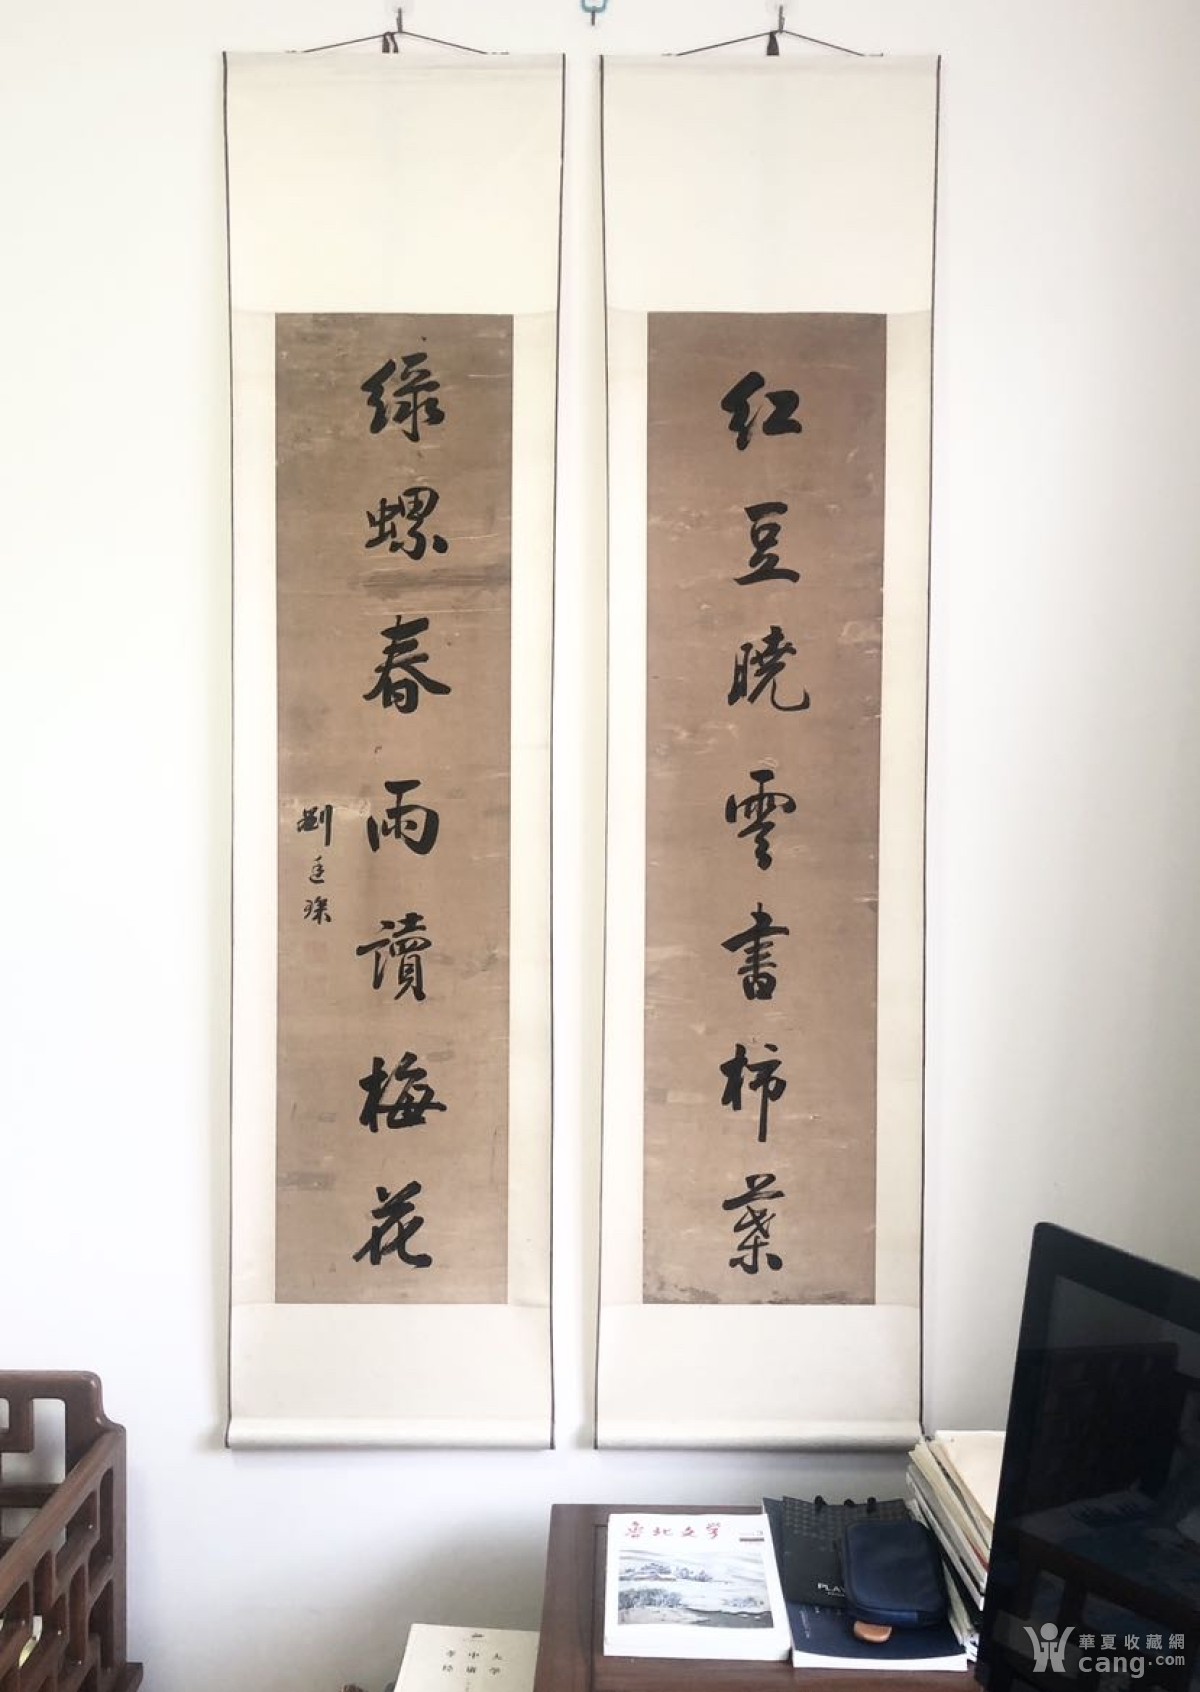 红豆曉雲書柿葉
緑螺春雨讀梅花
劉廷琛
鲁北文学
大学
中庸
孝经
PLAY
華夏收藏網
cang.com